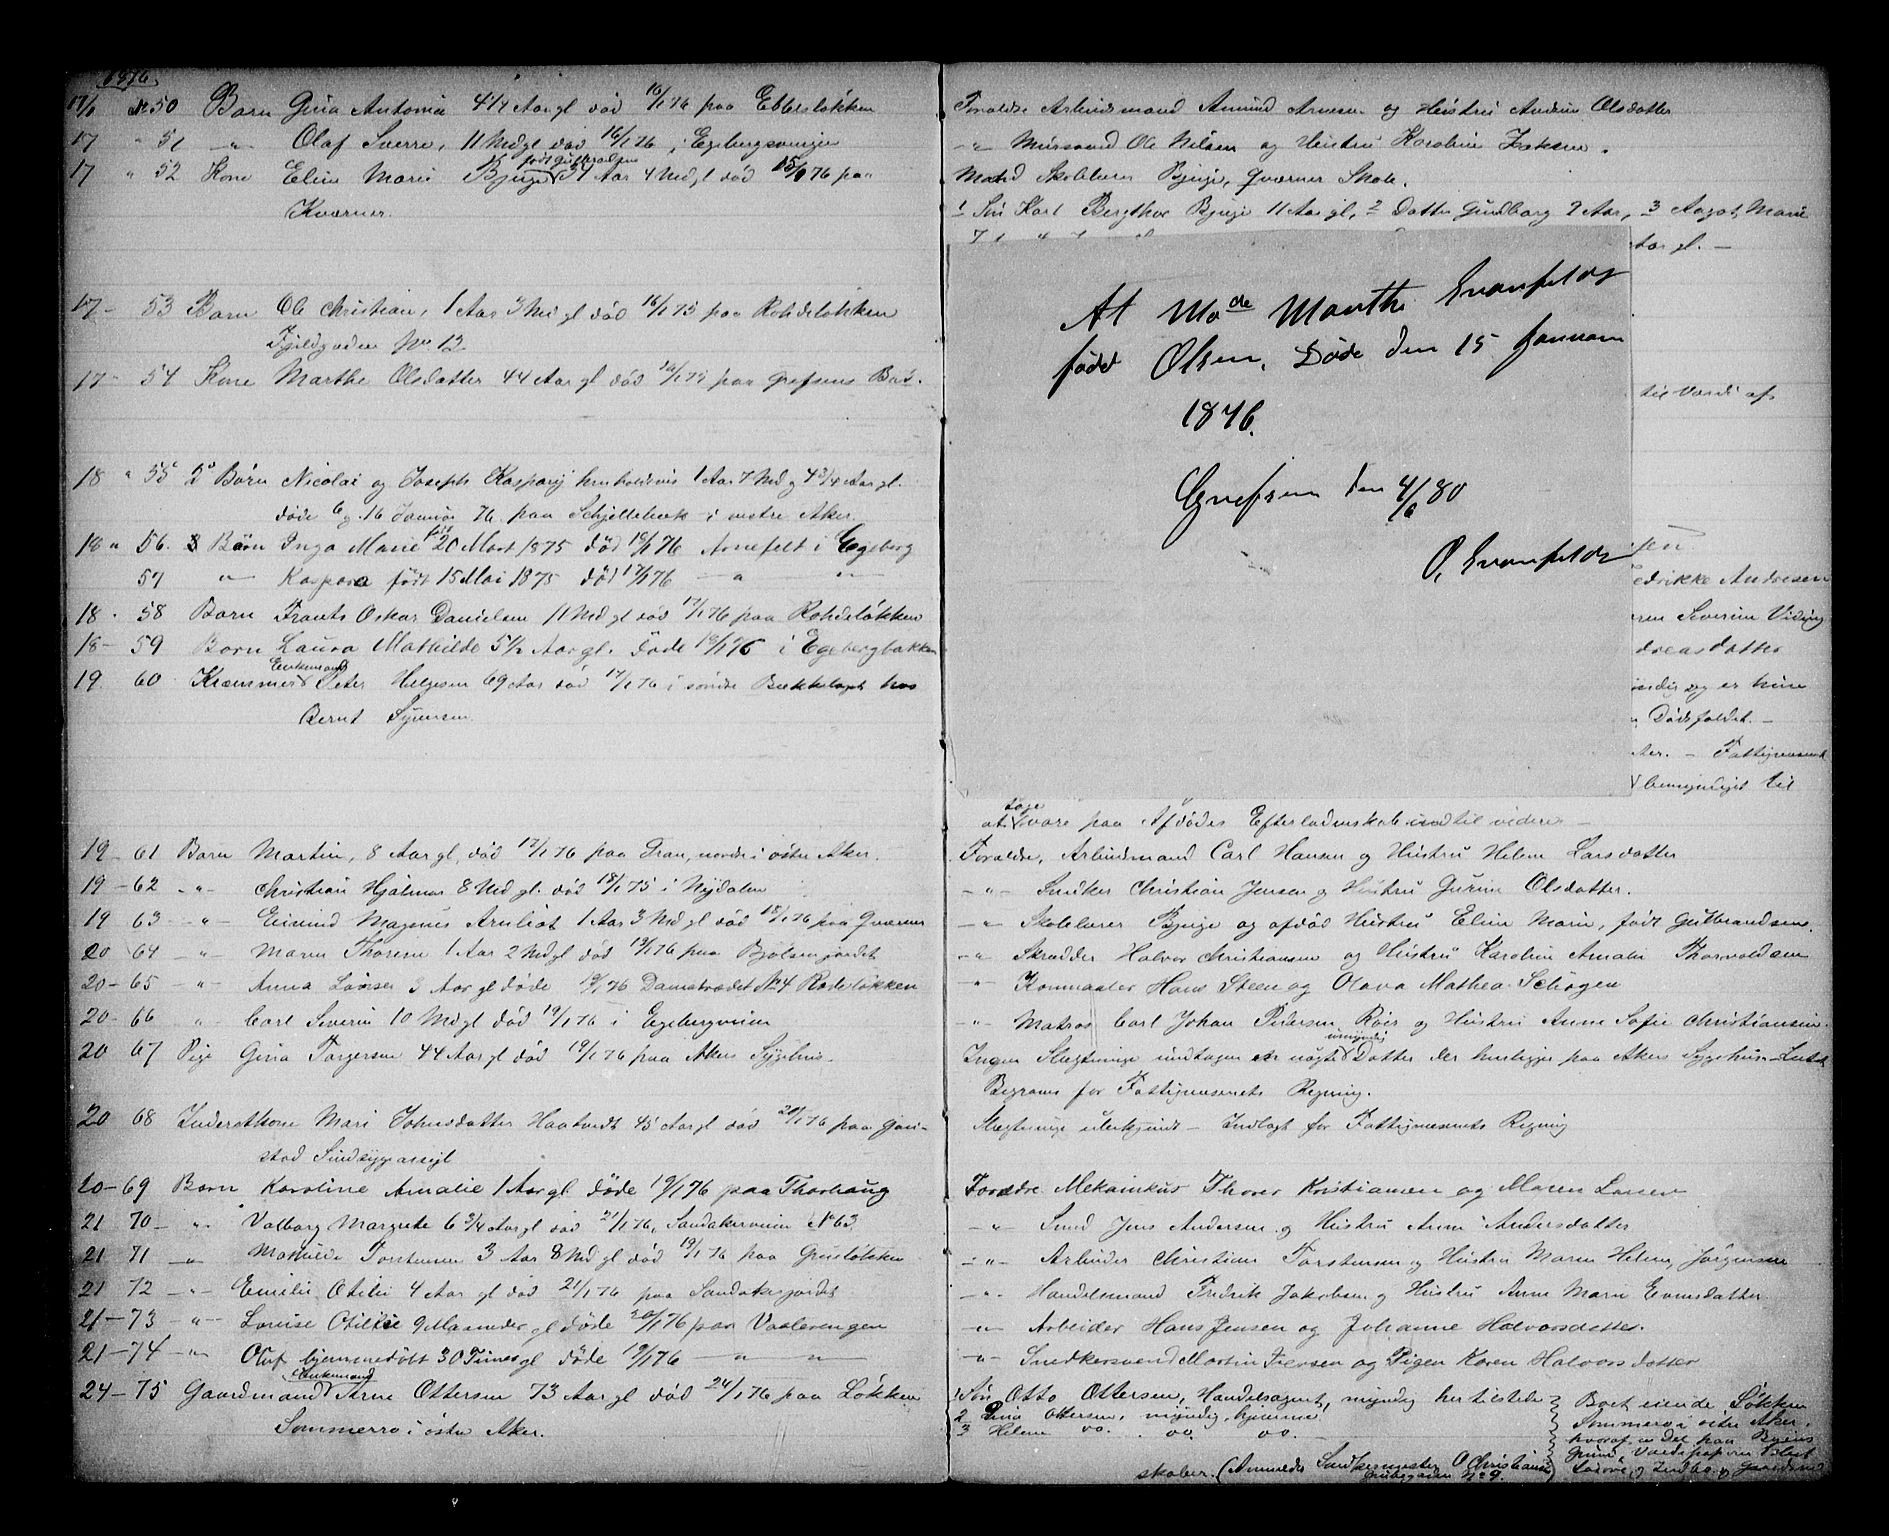 1876.
17/1 № 50 Barn Gina Antonia 4 1/4 Aar gl død 16/1 76 paa Ebbesløkken
17 " 51 —"— Olaf Sverre, 11 Mdgl død 16/1 76, Egebergveien
17 " 52 Kone Elin Marie Bjuge født Gulbrandsen 31 Aar 4 Mdgl død 15/1 76 paa
Kværner.
17 - 53 Barn Ole Christian, 1 Aar 3 Md gl død 16/1 75 paa Rohdeløkken
Fjeldgaden No 12
17 - 54 Kone Marthe Olsdatter 44 Aar gl død paa Grefsens Bad.
18 " 55 2 Børn Nicolai og Joseph Kaspary henholdsvis 1 Aar 7 Md og 4 3/4 Aar gl.
døde 6 og 16 Januar 76 paa Schjellebæk i vestre Aker.
18 " 56. 2 Børn Inga Marie født 20 Mart 1875 død 16/1 76 Arnefelt i Egeberg
57 —"— Kaspara født 15 Mai 1875 død 17/1 76 —"— —"—
18 - 58 Barn Frants Oskar Danielsen 11 Md gl død 17/1 76 paa Rohdeløkken
18 - 59 Barn Laura Mathilde 5 1/2 Aar gl. døde 18/1 76 i Egebergbakken
19. 60 Kræmmer Enkemand Peter Helgesen 69 Aar død 17/1 76 i søndre Bækkelaget hos
Bernt Syvertsen.
19 - 61 Barn Martin, 8 Aar gl, død 17/1 76 paa Tran, nordre i østre Aker.
19 - 62 —"— Christian Hjalmar 8 Md gl. død 18/1 75 i Nydalen
19 63 —"— Eivind Magnus Arnliot 1 Aar 3 Md gl død 18/1 76 paa Qværner
20 64 —"— Maren Thorsen 1 Aar 2 Md gl død 19/1 76 paa Bjølsenjordet
20 - 65 —"— Anna Lovise 3 Aar gl døde 19/1 76 Damstrædet № 4 Rodeløkken
20 - 66 " Carl Severin 10 Md gl død 19/1 76 i Egebergveien
20 67 Pige Gina Torgersen 44 Aar gl død 19/1 76 paa Akers Sygehus.
20 68 Inderstkone Mari Johnsdatter Haatvedt 45 Aar gl død 20/1 76 paa Gau-
stad Sindsygeasyl
20 - 69 Barn Karoline Amalie 1 Aar gl døde 19/1 76 paa Thorhaug
21 70 - " Valborg Margrete 6 3/4 Aar gl død 21/1 76, Sandakerveien № 63
21 71 —"— Mathilde Torstensen 3 Aar 8 Md gl død 19/1 76 paa Grünløkken
21 72 —"— Emilie Otilie 4 Aar gl død 21/1 76 paa Sandakerjordet
21 - 73 —"— Lovise Otilie 9 Maaneder gl døde 20/1 76 paa Vaalerengen
21 - 74 —"— Oluf hjemmedøbt 30 Timer gl døde 19/1 76 —"— —"—
24 - 75 Gaardmand Enkemand Arne Ottersen 73 Aar gl død 24/1 76 paa Løkken
Sommerro i østre Aker.
Forældre Arbeidsmand Amund Arnesen og Hustru Andrine Olsdatter
—"— Mursvend Ole Nilsen og Hustru Karoline
Mand Skolelærer Bjuge, Qværner Skole.
1 Søn Karl Bergthor Bjuge 11 Aar gl, 2 Datter Gundborg 9 Aar, 3 Aagot Marie
Aar gl. —
At Mode Marthe Svanfeldt
født Olsen. Døde den 15 Januar
1876.
Grefsen den 4/6 80
O. Svanfeldt
til Værdi af
pen.
edrikke Andresen
ren Severin Viding
dreasdatter
er hun
Dødsfaldet. —
ter. — Fattigvæsenet
bemyndiget til
at tage vare paa Afdødes Efterladenskab indtil videre —
Forældre, Arbeidsmand Carl Hansen og Hustru Helene Larsdatter
—"— Snedker Christian Jensen og Hustru Gurine Olsdatter.
—"— Skolelærer Bjuge og afdød Hustru Elin Marie, født Gulbrandsen.
—"— Skrædder Halvor Christiansen og Hustru Karoline Amalie Thorvaldsen
—"— Kornmaaler Hans Steen og Olava Mathea Schøgen
—"— Matros Carl Johan Pedersen Røer og Hustru Anne Sofie Christiansen.
Ingen Slægtninge undtagen en uægte umyndig Datter der henligger paa Akers Sygehus
Begraves for Fattigvæsenets Regning.
Slægtninge ubekjendt — Indlagt for Fattigvæsenets Regning
Forældre Mekanikus Thorer Kristiansen og Maren Larsen
—"— Smed Jens Andersen og Hustru Anne Andersdatter
—"— Arbeider Christian Torstensen og Hustru Maren Helene Jørgensen
—"— Handelsmand Fredrik Jakobsen og Hustru Anne Marie Evensdatter
—"— Arbeider Hans Jensen og Johanne Halvorsdatter.
—"— Snedkersvend Martin Iversen og Pigen Karen Halvorsdatter
1 Søn Otto Ottersen, Handelsagent, myndig her tilstede
2 Gina Ottersen, myndig, hjemme
3 Helene do. do. do.
Boet eiende Løkken
Sommerro i østre Aker,
hvoraf en Del paa Byens
Grund, Værdipapirer
Løsøre, Indbo og
skaber. (Anmeldt Snedkermester O Christiansen
Grubegaden No 9.)